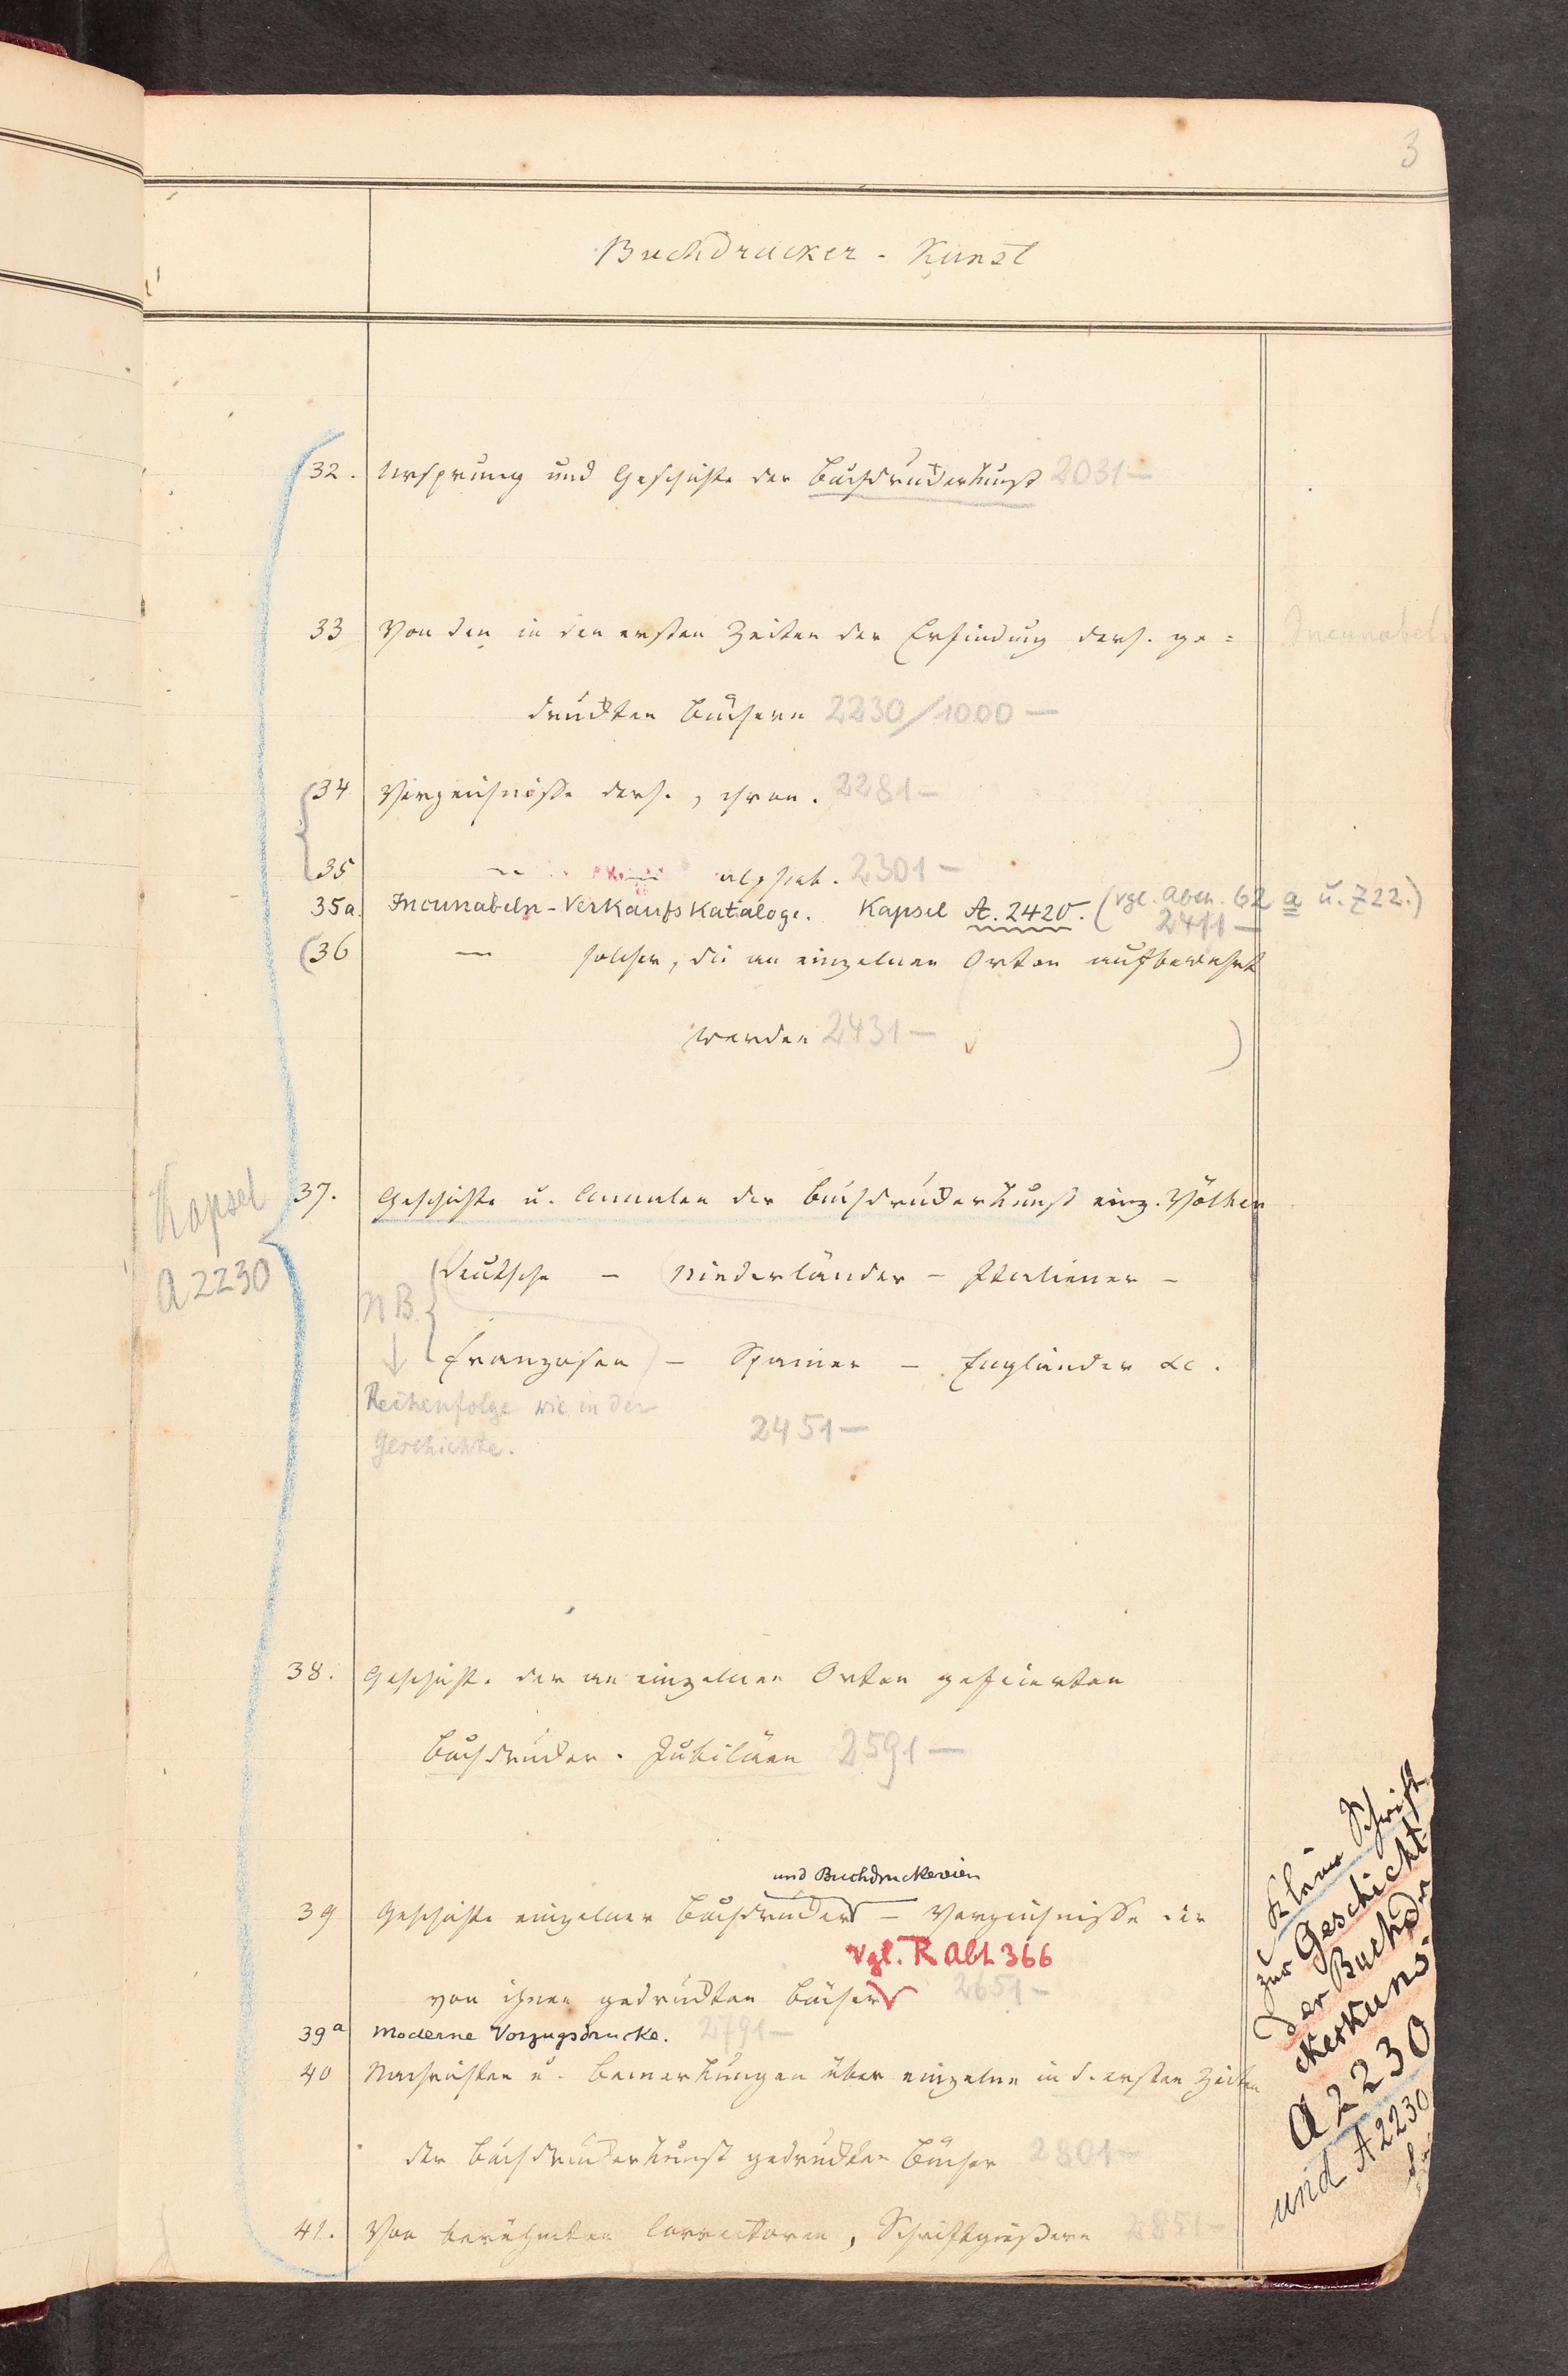 3
Buchdrucker-Kunst
32. Ursprung und Geschichte der Buchdruckerkunst 2031—
33 Von den in den ersten Zeiten der Erfindung ders. ge= Incunabeln
druckten Büchern 2230/1000—
34 Verzeichnisse ders., chron. 2281—
35 — — alphab. 2301—
35a. Incunabeln-Verkaufskataloge. Kapsel A. 2420. (vgl. Abth. 62 a u. Z22.)
2411—
(36 — solcher, die an einzelnen Orten aufbewahrt
werden 2431— )
Kapsel
A 2230
37. Geschichte u. Annalen der Buchdruckerkunst einz. Völker
Deutsche – Niederländer – Italiener –
NB
Franzosen – Spanier – Engländer &c.
Reihenfolge wie in der
Geschichte.
2451—
38. Geschichte der an einzelnen Orten gefeierten
Buchdrucker-Jubiläen 2591—
und Buchdruckereien
39 Geschichte einzelner Buchdrucker – Verzeichnisse der
Vgl. R Abt 366
von ihnen gedruckten Bücher 2651—
39a Moderne Vorzugsdrucke. 2791—
40 Nachrichten u. Bemerkungen über einzelne in d. ersten Zeiten
der Buchdruckerkunst gedruckten Bücher 2801—
41. Von berühmten Correctoren, Schriftgießern 2851—
Kleine Schrift
zur Geschicht
der Buchdr
ckerkuns
A 2230
und A 2230